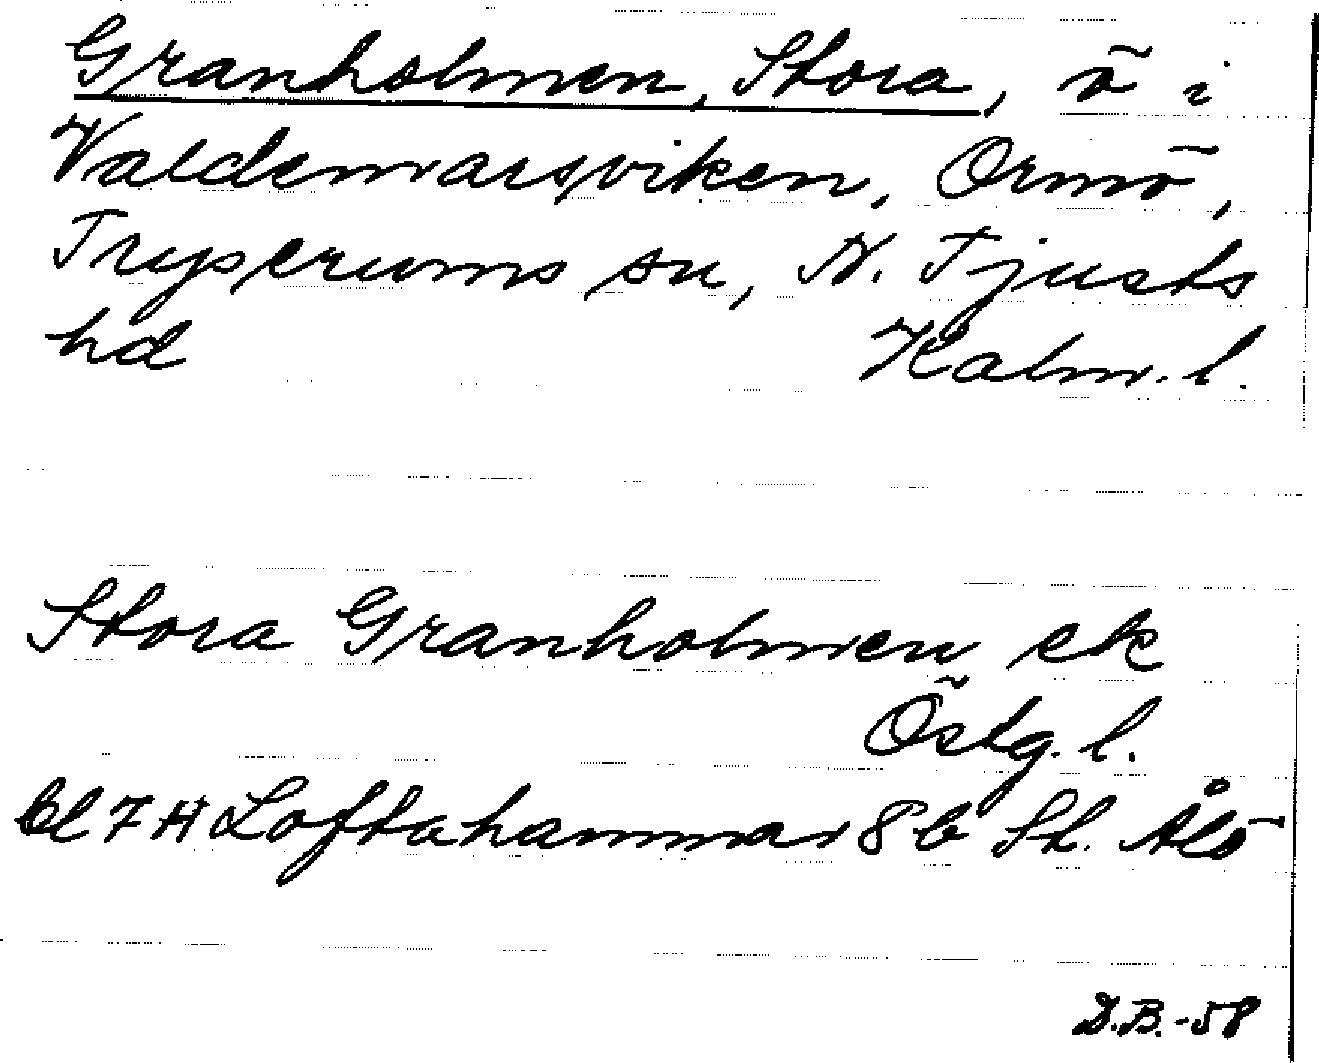 Granholmen, Stora, ö i
Valdemarsviken, Ormö,
Tryserums sn, N. Tjusts
hd Kalm. l.
Stora Granholmen ek
Östg. l.
bl 7 H Loftahammar 8 b St. Ålö
D.B.-58